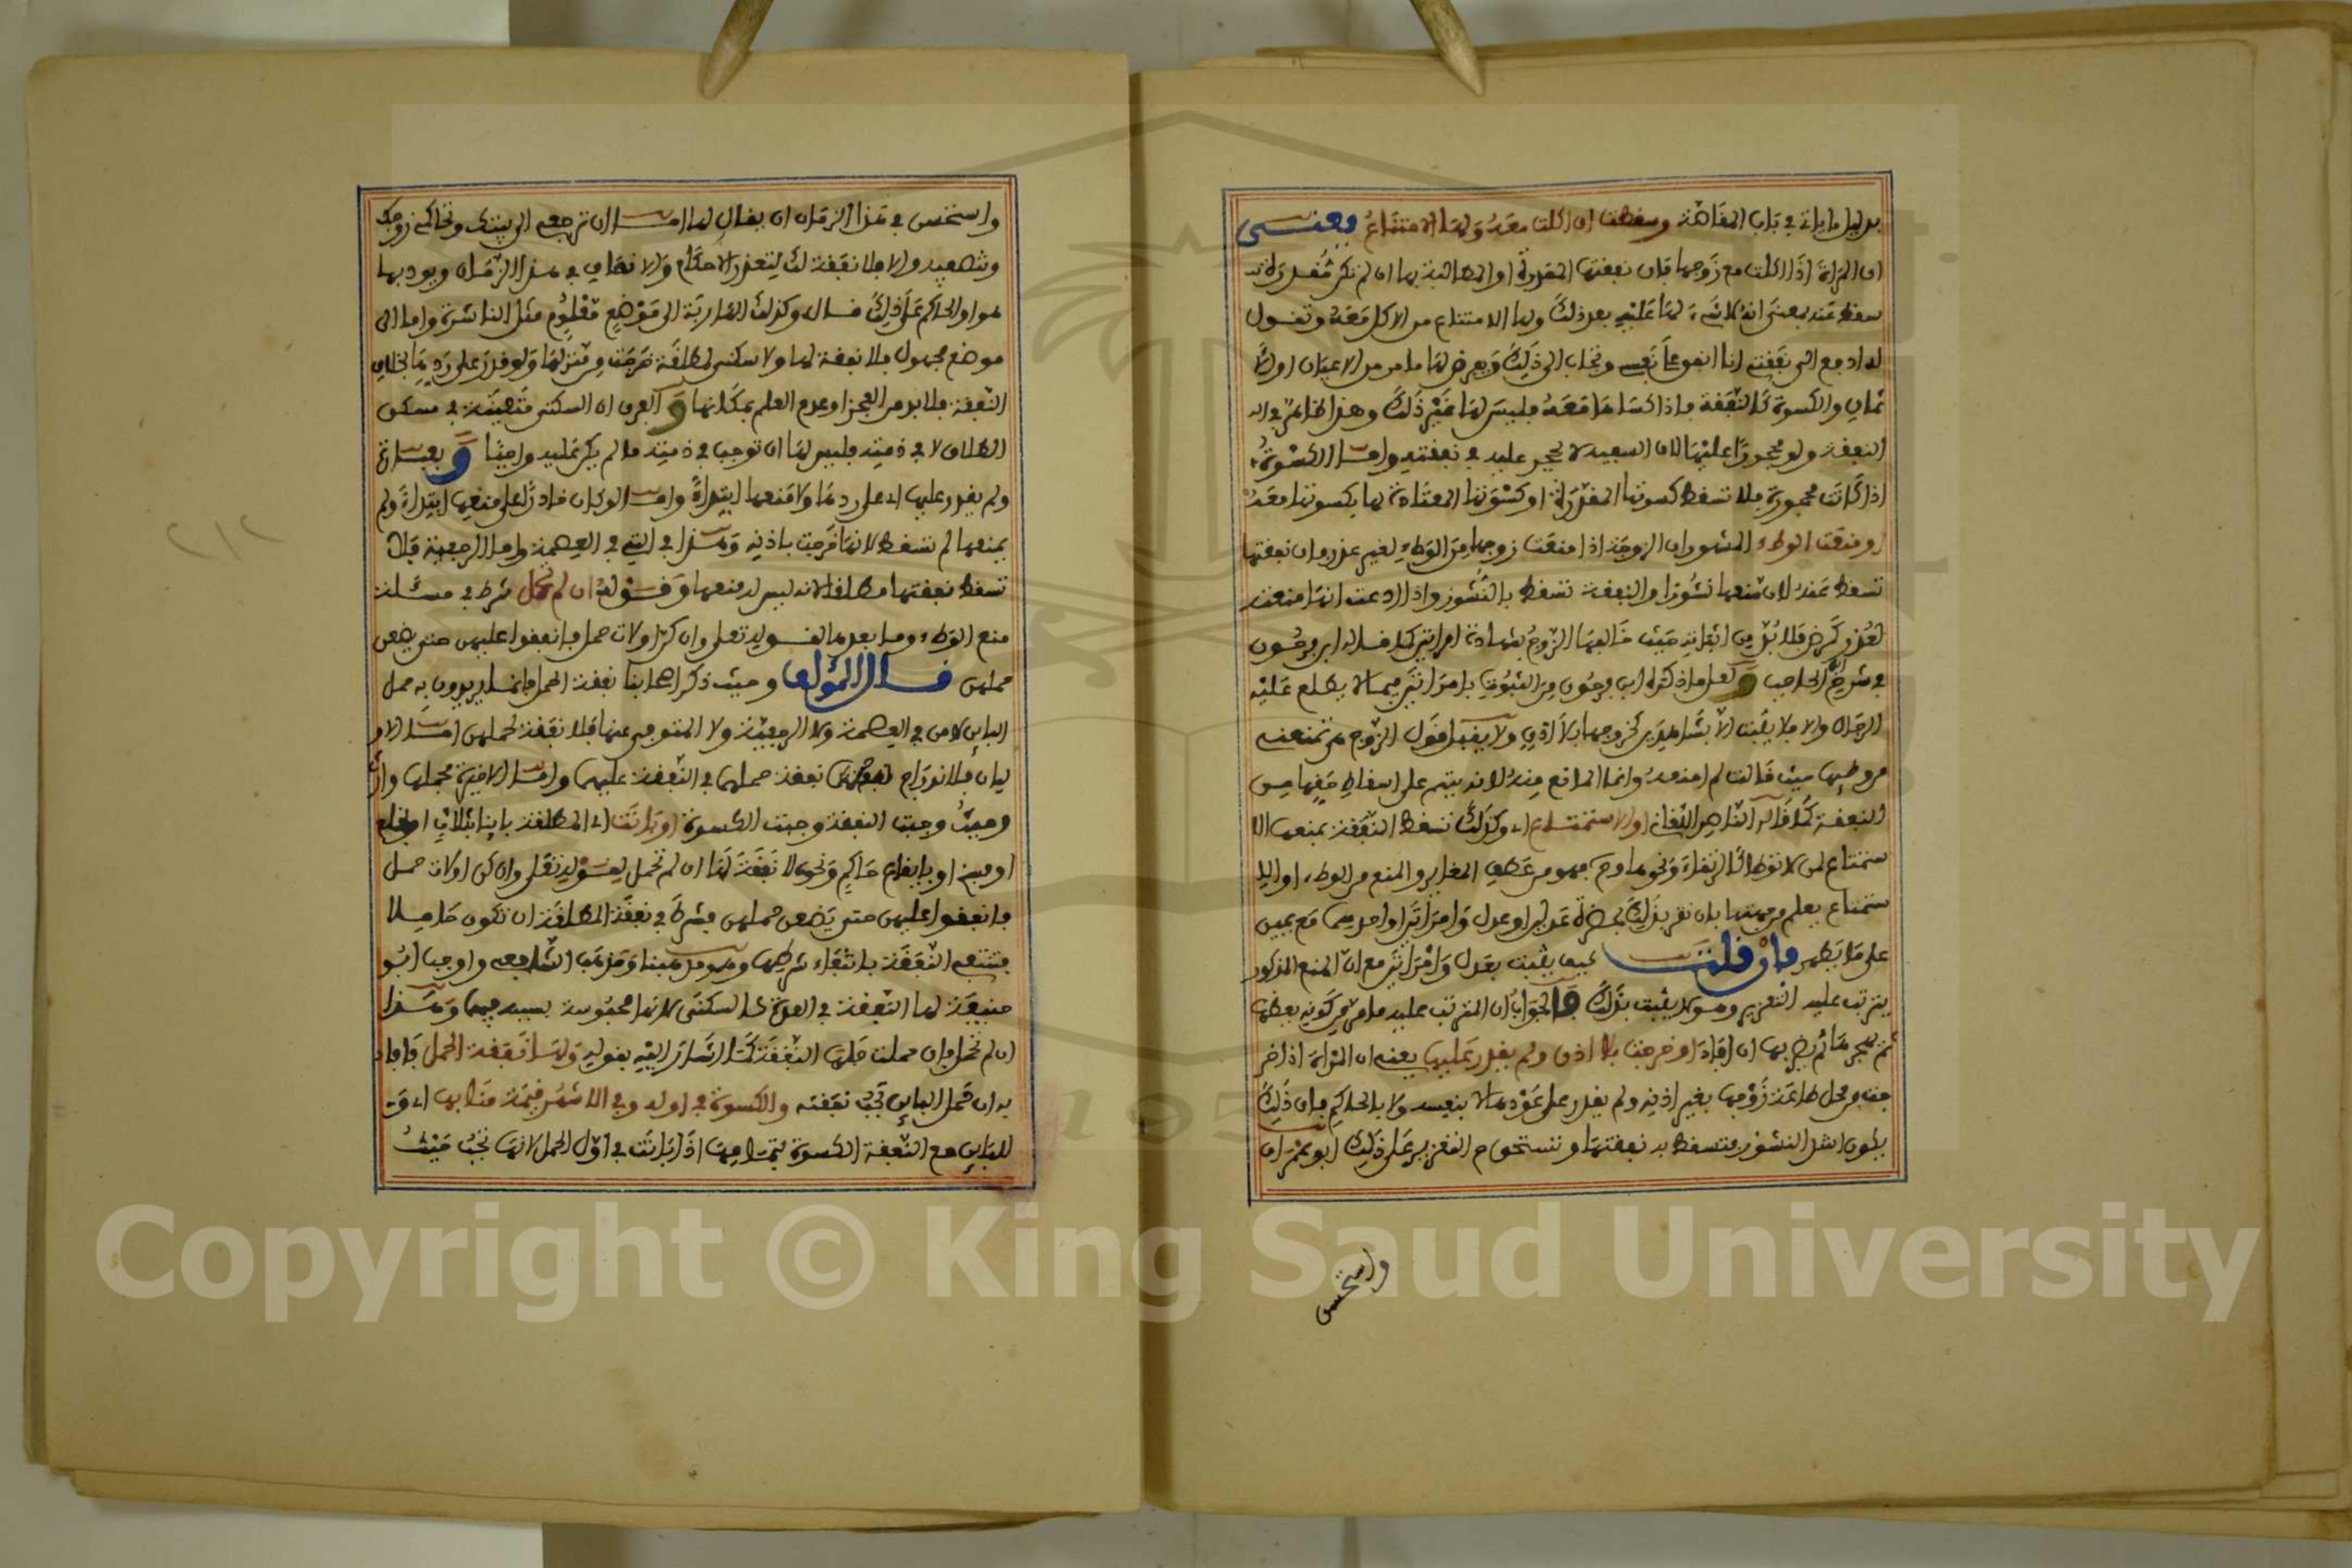 بدليل ما ياتي في باب المقاصة وسقطت ان اكلت معه ولها الامتناع يعني
ان المراة اذا اكلت مع زوجها فان نفقتها المقررة او المطالبة بها ان لم تكن مقررة
سقط عنه بمعنى انه لا شيء لها عليه بعد ذلك ولها الامتناع من الاكل معه وتقول
له ادفع الي نفقتي انا انفق على نفسي وتجاب الى ذلك ويفرض لها ما مر من الاعيان او الا
ثمان والكسوة كالنفقة فاذا كساها معه فليس لها غير ذلك وهذا ظاهر في
النفقة ولو محجورا عليها لان السفيه لا يحجر عليه في نفقته واما الكسوة
اذا كانت محجورة فلا تسقط كسوتها المقررة او كسوتها المعتادة لها بكسوتها معه
او منعت الوطء المشهور ان الزوجة اذا منعت زوجها من الوطء لغير عذر فان نفقتها
تسقط عنه لان منعها نشوزا والنفقة تسقط بالنشوز واذا ادعت انها منعته
لعذر كمرض فلا بد من اثباته حيث خالفها الزوج بشهادة امراتين كما قاله ابن فرحون
في شرح ابن الحاجب و لعل ما ذكره ابن فرحون من الثبوت بامراتين فيما لا يطلع عليه
الرجال والا فلا يثبت الا بشاهدين كخروجها بلا اذن ولا يقبل قول الزوج هي تمنعني
من وطئها حيث قالت لم امنعه وانما المانع منه لانه يتهم على اسقاط حقها من
النفقة كما قاله الناصر اللقاني او الاستمتاع اي وكذلك تسقط النفقة بمنعها الا
ستمتاع لمن لا توطا كالرتقاء ونحوها وح فهو من عطف المغاير والمنع من الوطء او الا
ستمتاع يعلم من جهتها بان تقر بذلك بحضرة عدلين او عدل وامراتين او احدهما مع يمين
على ما يظهر فان قلت كيف يثبت بعدل وامراتين مع ان المنع المذكور
يترتب عليه التعزير وهو لا يثبت بذلك فالجواب ان المترتب عليه ما مر من كونه يعظها
ثم يهجرها ثم يضربها ان افاد او خرجت بلا اذن ولم يقدر عليها يعني ان المراة اذا خر
جت من محل طاعة زوجها بغير اذنه ولم يقدر على عودها لا بنفسه ولا بالحاكم فان ذلك
يكون اشد النشوز فتسقط به نفقتها وتستحق التعزير على ذلك ابو عمران
واستحسن
واستحسن في هذا الزمان ان يقال لها اما ان ترجعي الى بيتك وتحاكمي زوجك
وتنصفيه والا فلا نفقة لك لتعذر الاحكام والانصاف في هذا الزمان ويودبها
هو او الحاكم على ذلك قال وكذلك الهاربة الى موضع معلوم مثل الناشزة واما الى
موضع مجهول فلا نفقة لها ولا سكنى لمطلقة خرجت من منزلها ولو قدر على ردها بخلاف
النفقة فلا بد من العجز او عدم العلم بمكانها و الفرق ان السكنى متعينة في مسكن
الطلاق لا في ذمته فليس لها ان توجب في ذمته ما لم يكن عليه واجبا و
ولم يقدر عليها اي على ردها ولا منعها ابتداء واما لو كان قادرا على منعها ابتداء ولم
يمنعها لم تسقط لانها خرجت باذنه وهذا في التي في العصمة واما الرجعية فلا
تسقط نفقتها مطلقا لانه ليس له منعها وقوله ان لم تحمل شرط في مسئلة
منع الوطء وما بعدها لقوله تعلى وان كن اولات حمل فانفقوا عليهن حتى يضعن
حملهن قال المؤلف وحيث ذكر اصحابنا نفقة الحمل فانما يريدون به حمل
البائن لا من في العصمة ولا الرجعية ولا المتوفى عنها فلا نفقة لحملهن اما الاو
ليان فلاندراج نفقة حملهما في النفقة عليهما واما الاخيرة فحملها وارث
وحيث وجبت النفقة وجبت الكسوة او بانت اي المطلقة باينا بثلاث او بخلع
او فسخ او بايقاع حاكم ونحوه لا نفقة لها ان لم تحمل لقوله تعلى وان كن اولات حمل
فانفقوا عليهن حتى يضعن حملهن فشرط في نفقة المطلقة ان تكون حاملا
فتنتفي النفقة بانتفاء شرطها وهو مذهبنا ومذهب الشافعي واوجب ابو
حنيفة لها النفقة في العدة كالسكنى لانها محبوسة بسببه فيهما وهذا
ان لم تحمل فان حملت فلها النفقة كما اشار اليه بقوله ولها نفقة الحمل فافاد
به ان حمل البائن تجب نفقته والكسوة في اوله وفي الاشهر قيمة منابها اي و
للبائن مع النفقة الكسوة بتمامها اذا بانت في اول الحمل لانها تجب حيث
٢١٢
Copyright © King Saud University